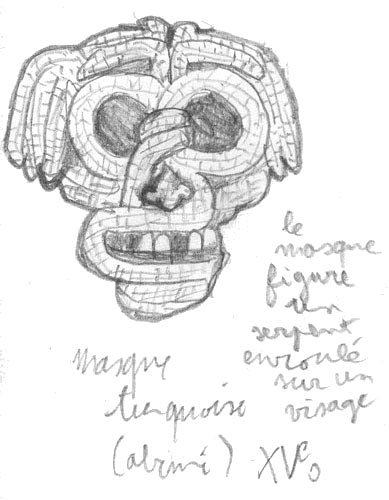 le
masque
figure
un
serpent
enroulé
sur un
visage
masque
turquoise
(abimé) XVe